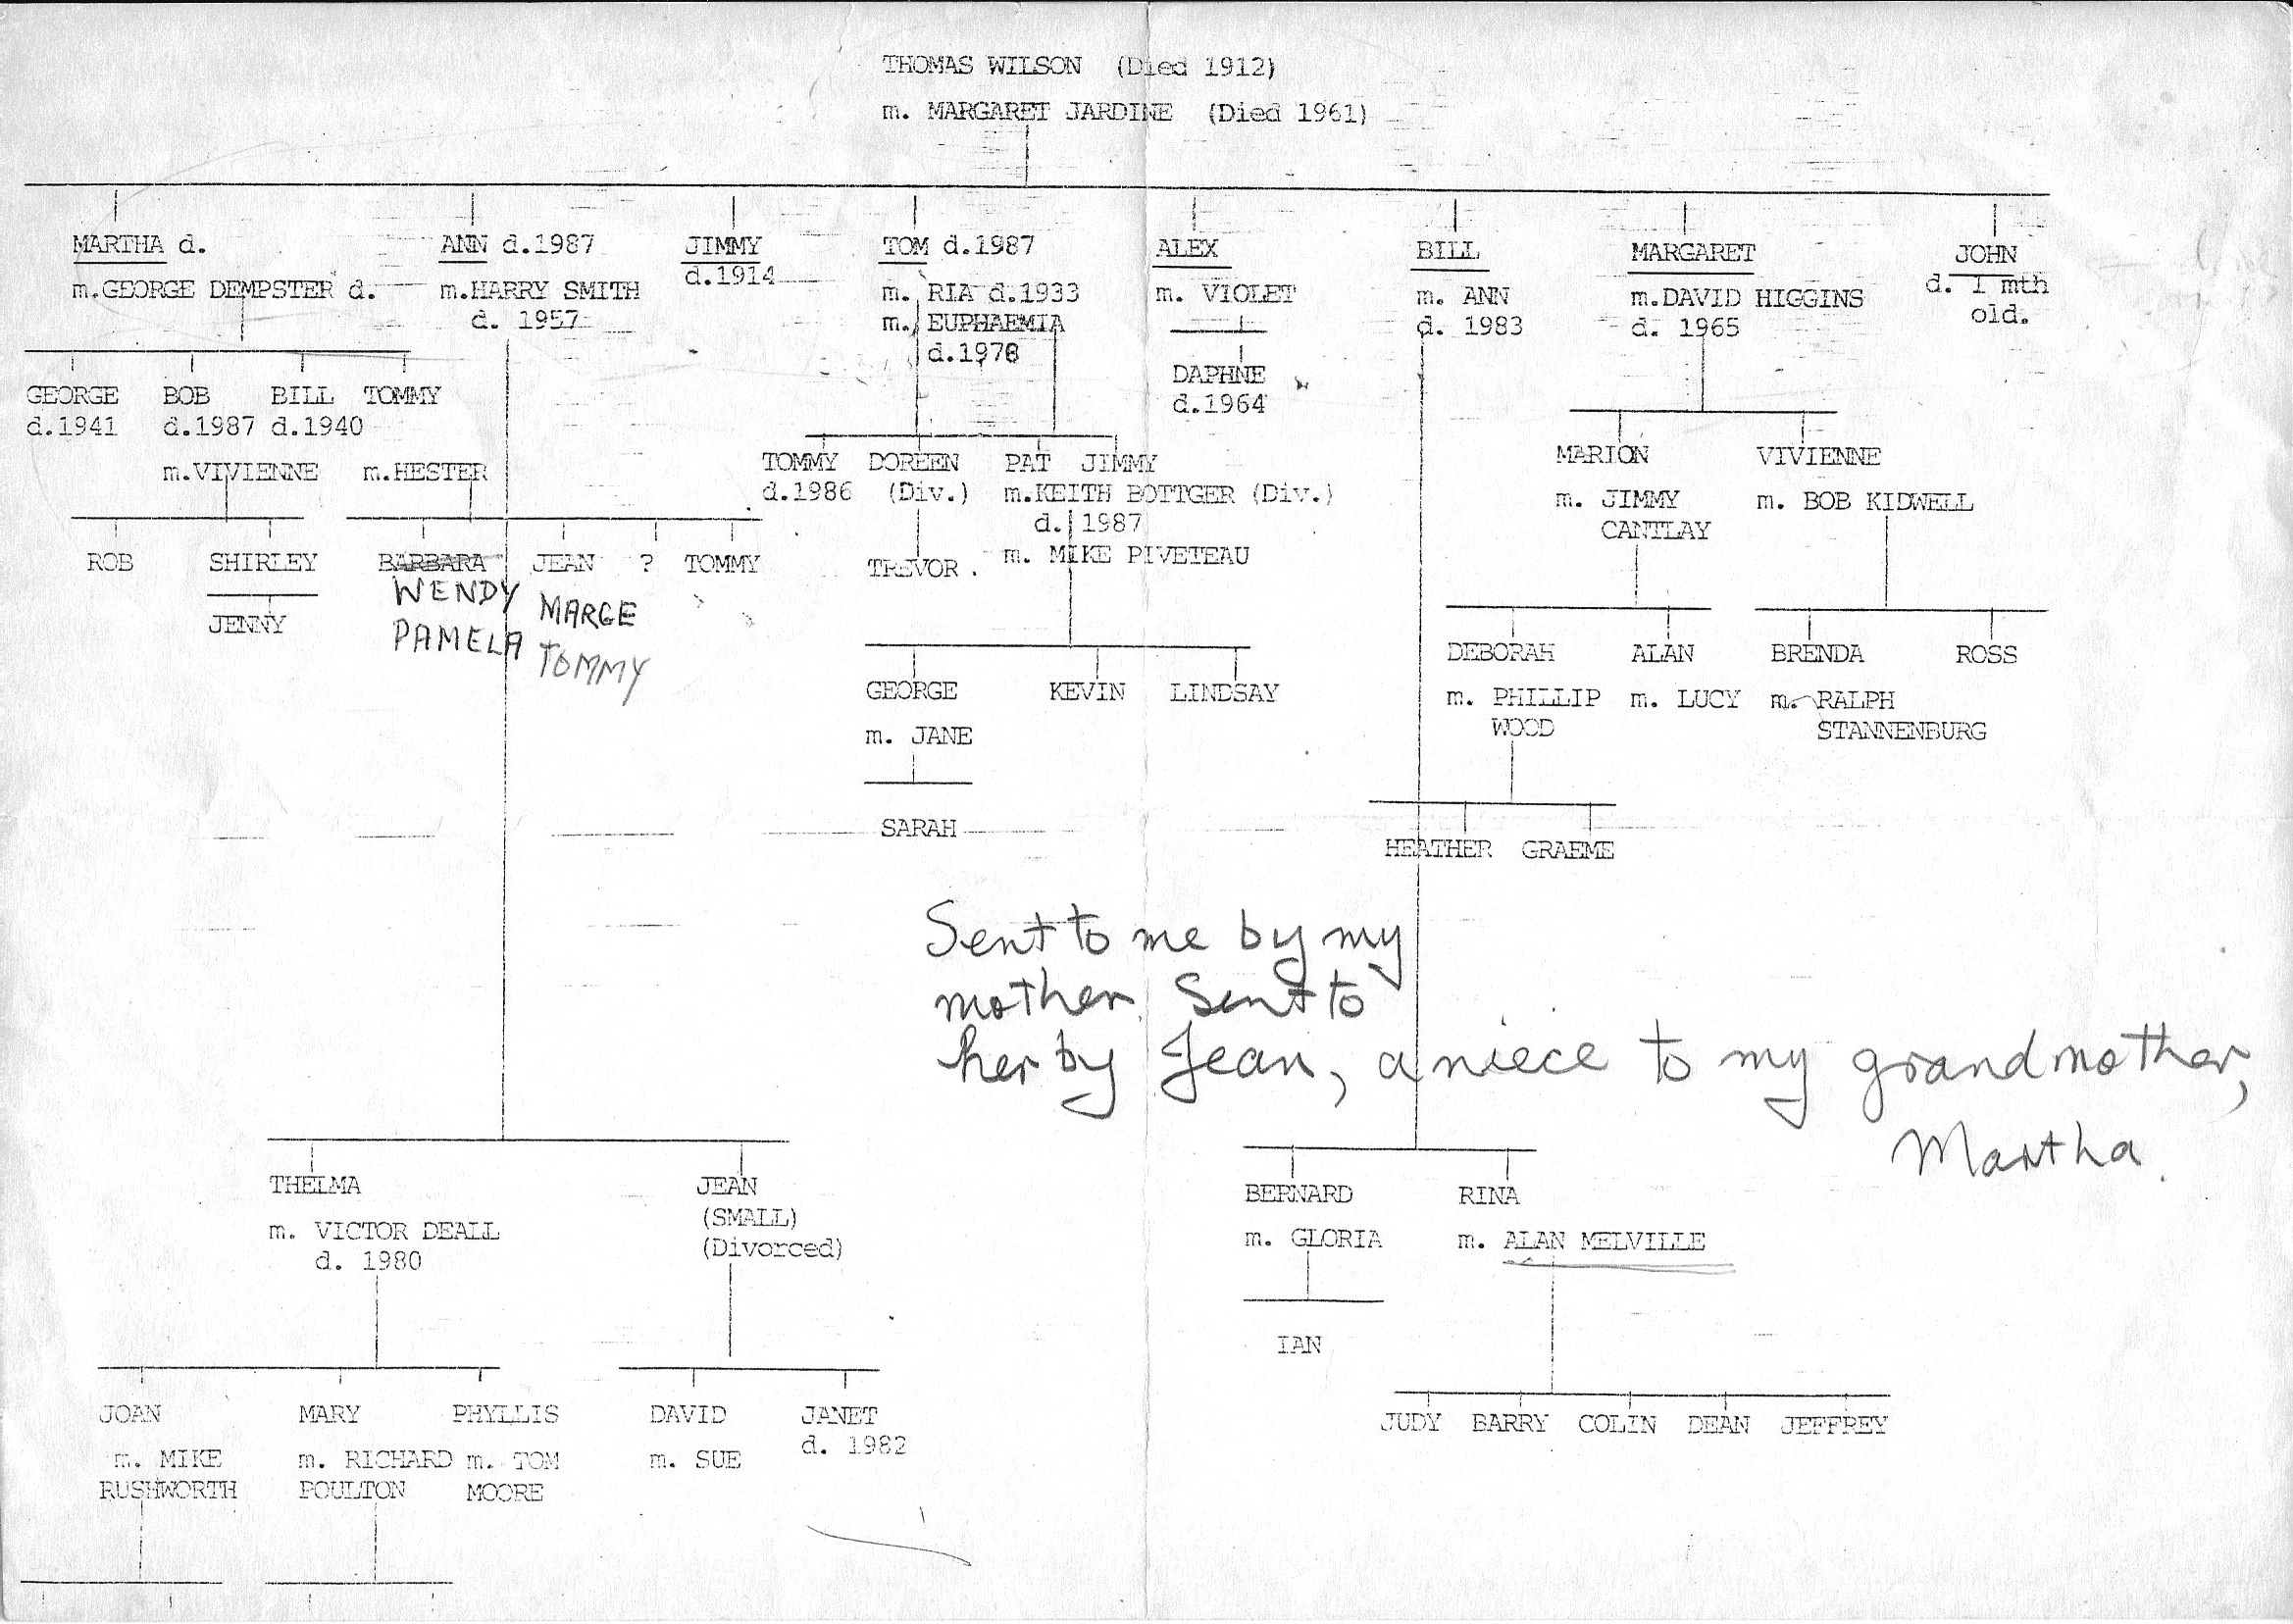 THOMAS WILSON (Died 1912)
m. MARGARET JARDINE (Died 1961)
MARTHA d.
m.GEORGE DEMPSTER d.
ANN d.1987
m.HARRY SMITH
d. 1957
JIMMY
d.1914
TOM d.1987
m. RIA d.1933
m. EUPHAEMIA
d.1978
ALEX
m. VIOLET
DAPHNE
d.1964
BILL
m. ANN
d. 1983
MARGARET
m.DAVID HIGGINS
d. 1965
JOHN
d. 1 mth
old.
GEORGE
d.1941
BOB
d.1987
m.VIVIENNE
BILL
d.1940
TOMMY
m.HESTER
ROB
SHIRLEY
JENNY
BARBARA
WENDY
PAMELA
JEAN
MARGE
TOMMY
?
TOMMY
TOMMY
d.1986
DOREEN
(Div.)
TREVOR .
PAT JIMMY
m.KEITH BOTTGER (Div.)
d. 1987
m. MIKE PIVETEAU
GEORGE
m. JANE
SARAH
KEVIN
LINDSAY
MARION
m. JIMMY
CANTLAY
VIVIENNE
m. BOB KIDWELL
DEBORAH
m. PHILLIP
WOOD
ALAN
m. LUCY
BRENDA
m. RALPH
STANNENBURG
ROSS
HEATHER GRAEME
Sent to me by my
mother. Sent to
her by Jean, a niece to my grandmother,
Martha.
THELMA
m. VICTOR DEALL
d. 1980
JEAN
(SMALL)
(Divorced)
BERNARD
m. GLORIA
IAN
RINA
m. ALAN MELVILLE
JOAN
m. MIKE
RUSHWORTH
MARY
m. RICHARD
POULTON
PHYLLIS
m. TOM
MOORE
DAVID
m. SUE
JANET
d. 1982
JUDY BARRY COLIN DEAN JEFFREY